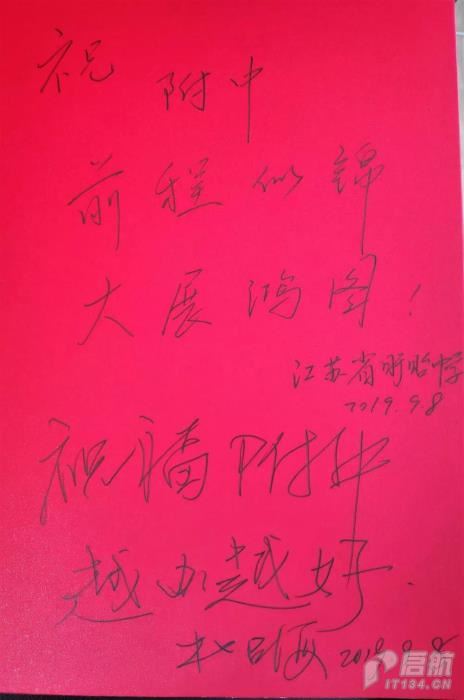 祝 附中
前程似锦
大展鸿图！
江苏省盱眙中学
2019.9.8
祝福附中
越办越好.
2019.9.8
启航
IT134.CN